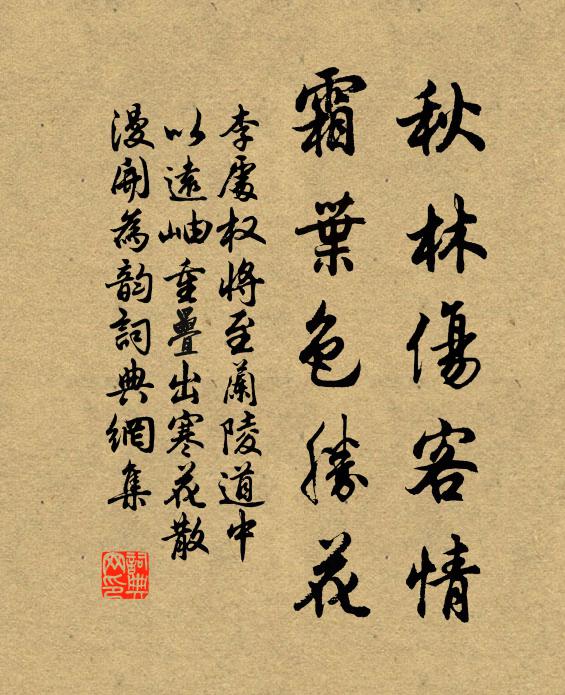 秋林傷客情
霜葉色勝花
李處权將至蘭陵道中
以遠岫重疊出寒花散
漫開為韵詞典網集
詞典
网印